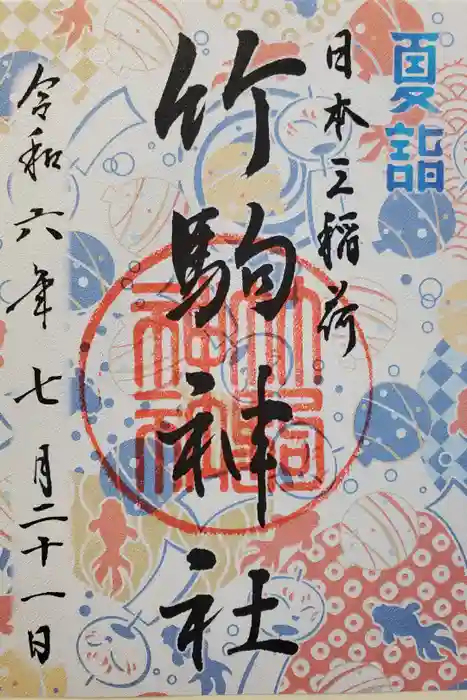 夏詣
日本三稲荷
竹駒神社
令和六年七月二十一日
竹駒神社